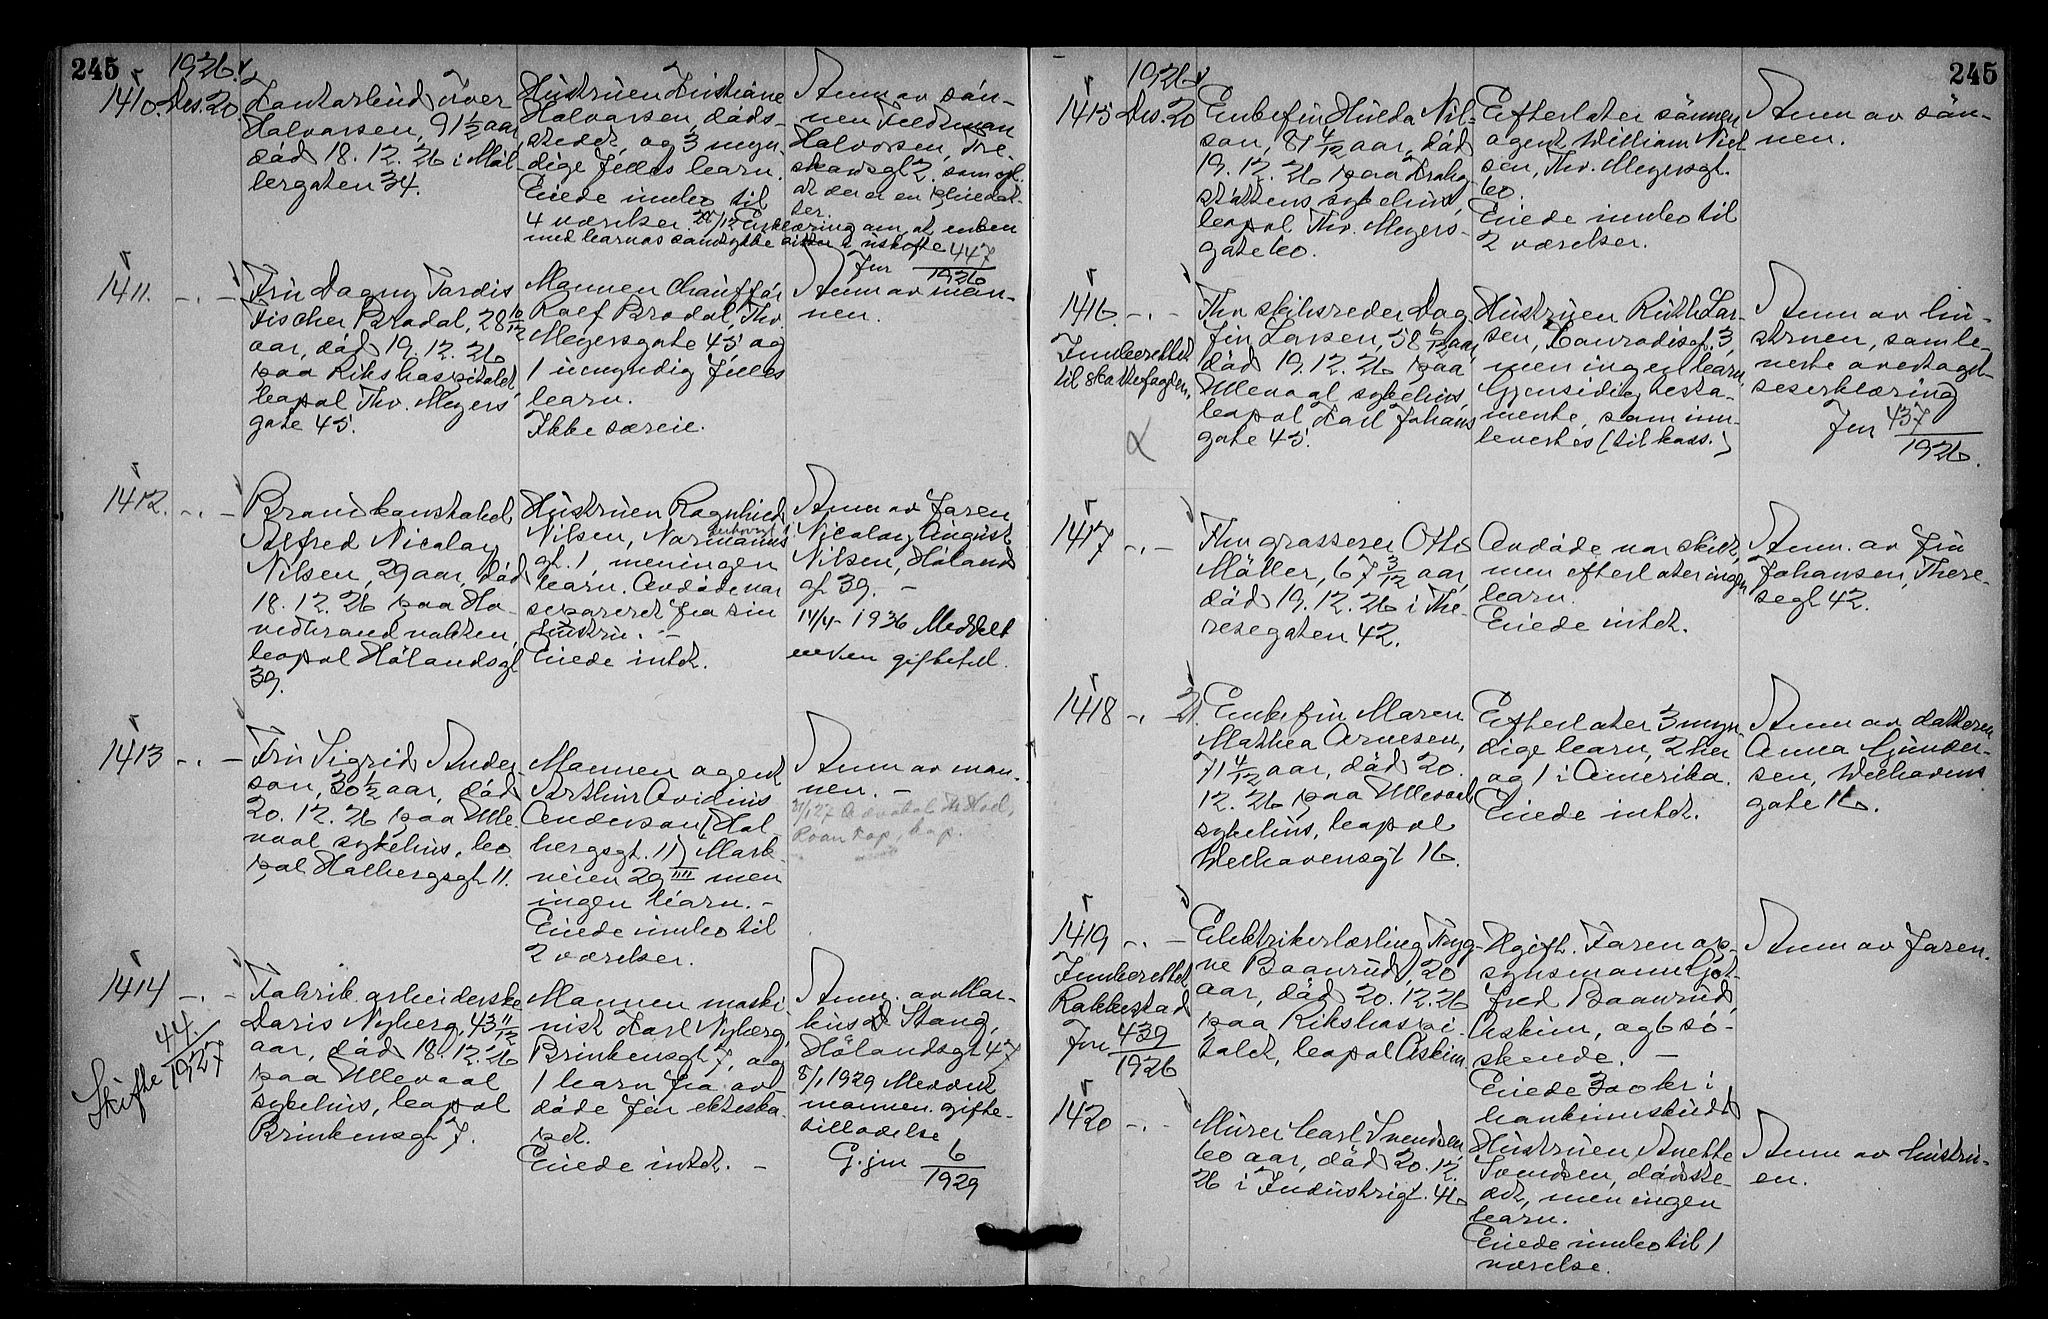 245
1926.
1410. Des. 20
Kontorbud Iver
Halvorsen, 91 1/2 aar
död 18.12.26 i Möl-
lergaten 34.
Hustruen Kristiane
Halvorsen, döds-
stedet, og 3 myn-
dige fælles barn.
Eiede innbo til
4 værelser.
Anm av sön-
nen
Halvorsen,
skansgt 2. som opl.
at der er en
ter.
21/12 Erklæring om at enken
med barnas samtykke sitter i uskifte
Jnr 447
1926
1411. -.-
Fru Dagny Tordis
Fischer Brodal, 28 10/12
aar, död 19.12.26
paa Rikshospitalet
bopæl Thv. Meyers
gate 45.
Mannen chaufför
Rolf Brodal, Thv.
Meyersgate 45 og
1 umyndig fælles
barn.
Ikke særeie.
Anm av man-
nen.
1412. -.-
Brandkonstabel
Alfred Nicolay
Nilsen, 29 aar, död
18.12.26 paa Ho-
vedbrandvakten,
bopæl Hölandsgt
39.
Hustruen Ragnhild
Nilsen, Normanns
gt. 1, men ingen
barn. Avdöde var
separeret fra sin
hustru. -
Eiede intet.
Anm av faren
Nicolay August
Nilsen, Höland
gt 39. -
14/4 - 1936 Meddelt
enken giftetil.
1413 -.-
Fru Sigrid Ander-
son, 30 1/2 aar, död
20.12.26 paa Ulle-
vaal sykehus, bo-
pæl Holbergsgt 11.
Mannen agent
Arthur Avidius
Anderson (Hol-
bergsgt. 11) Mark-
veien 29 IIII men
ingen barn. -
Eiede innbo til
2 værelser.
Anm av man-
nen. -
1414 -.-
Skifte 44.
1927
Fabrik arbeiderske
Doris Nyberg, 43 11/12
aar, död 18.12.26
paa Ullevaal
sykehus, bopæl
Brinkensgt 7.
Mannen maski-
nist Karl Nyberg,
Brinkensgt 7, og
1 barn fra av-
döde för ekteska-
pet.
Eiede intet. -
Anm. av Mar-
kus Stang,
Hölandsgt 47
8/1 1929 Meddelt
mannen gifte-
tilladelse
G.jnr 6
1929
245
1926
1415 Des. 20
Enkefru Hulda Nil-
son, 81 4/12 aar, död
19.12.26 paa Krohg-
stöttens sykehus,
bopæl Thv. Meyers-
gate 60.
Efterlater sönnen
agent William Niel-
sen, Thv. Meyersgt.
60.
Eiede innbo til
2 værelser.
Anm av sön-
nen.
1416. -.-
Innberettet
til skattefogden,
Fhv skibsreder Dag-
fin Larsen, 58 6/12 aar,
död 19.12.26 paa
Ullevaal sykehus,
bopæl Karl Johans
gate 45.
Hustruen Ruth Lar-
sen, Conradisgt. 3,
men ingen barn.
Gjensidig testa-
mente, som inn-
levertes (til kass.)
Anm av hu-
struen, som le-
verte overtagel-
seserklæring
Jnr 437
1926.
1417 -.-
Fhv grosserer Otto
Möller, 67 3/12 aar,
död 19.12.26 i The-
resegaten 42.
Avdöde var skilt,
men efterlater ingen
barn.
Eiede intet.
Anm. av fru
Johansen, There-
segt 42.
1418 -.- 21.
Enkefru Maren
Mathea Arnesen,
71 4/12 aar, död 20.
12.26 paa Ullevaal
sykehus, bopæl
Welhavensgt 16.
Efterlater 3 myn-
dige barn, 2 her
og 1 i Amerika.
Eiede intet.
Anm av datteren
Anna Gunder-
sen, Welhavens
gate 16.
1419 -.-
Innberettet
Rakkestad
Jnr 439
1926
Elektrikerlærling Tryg-
ve Baanrud, 20
aar, död 20.12.26
paa Rikshospi-
talet, bopæl Askim
Ugift. Faren op-
synsmann Got-
fred Baanrud,
Askim, og 6 sö-
skende. -
Eiede 300 kr i
bankinnskudd
Anm av faren.
1420 -.-
Murer Carl Svendsen,
60 aar, död 20.12.
26 i Industrigt. 46
Hustruen Anette
Svendsen, dödsste-
det, men ingen
barn.
Eiede innbo til 1
værelse.
Anm av hustru-
en.